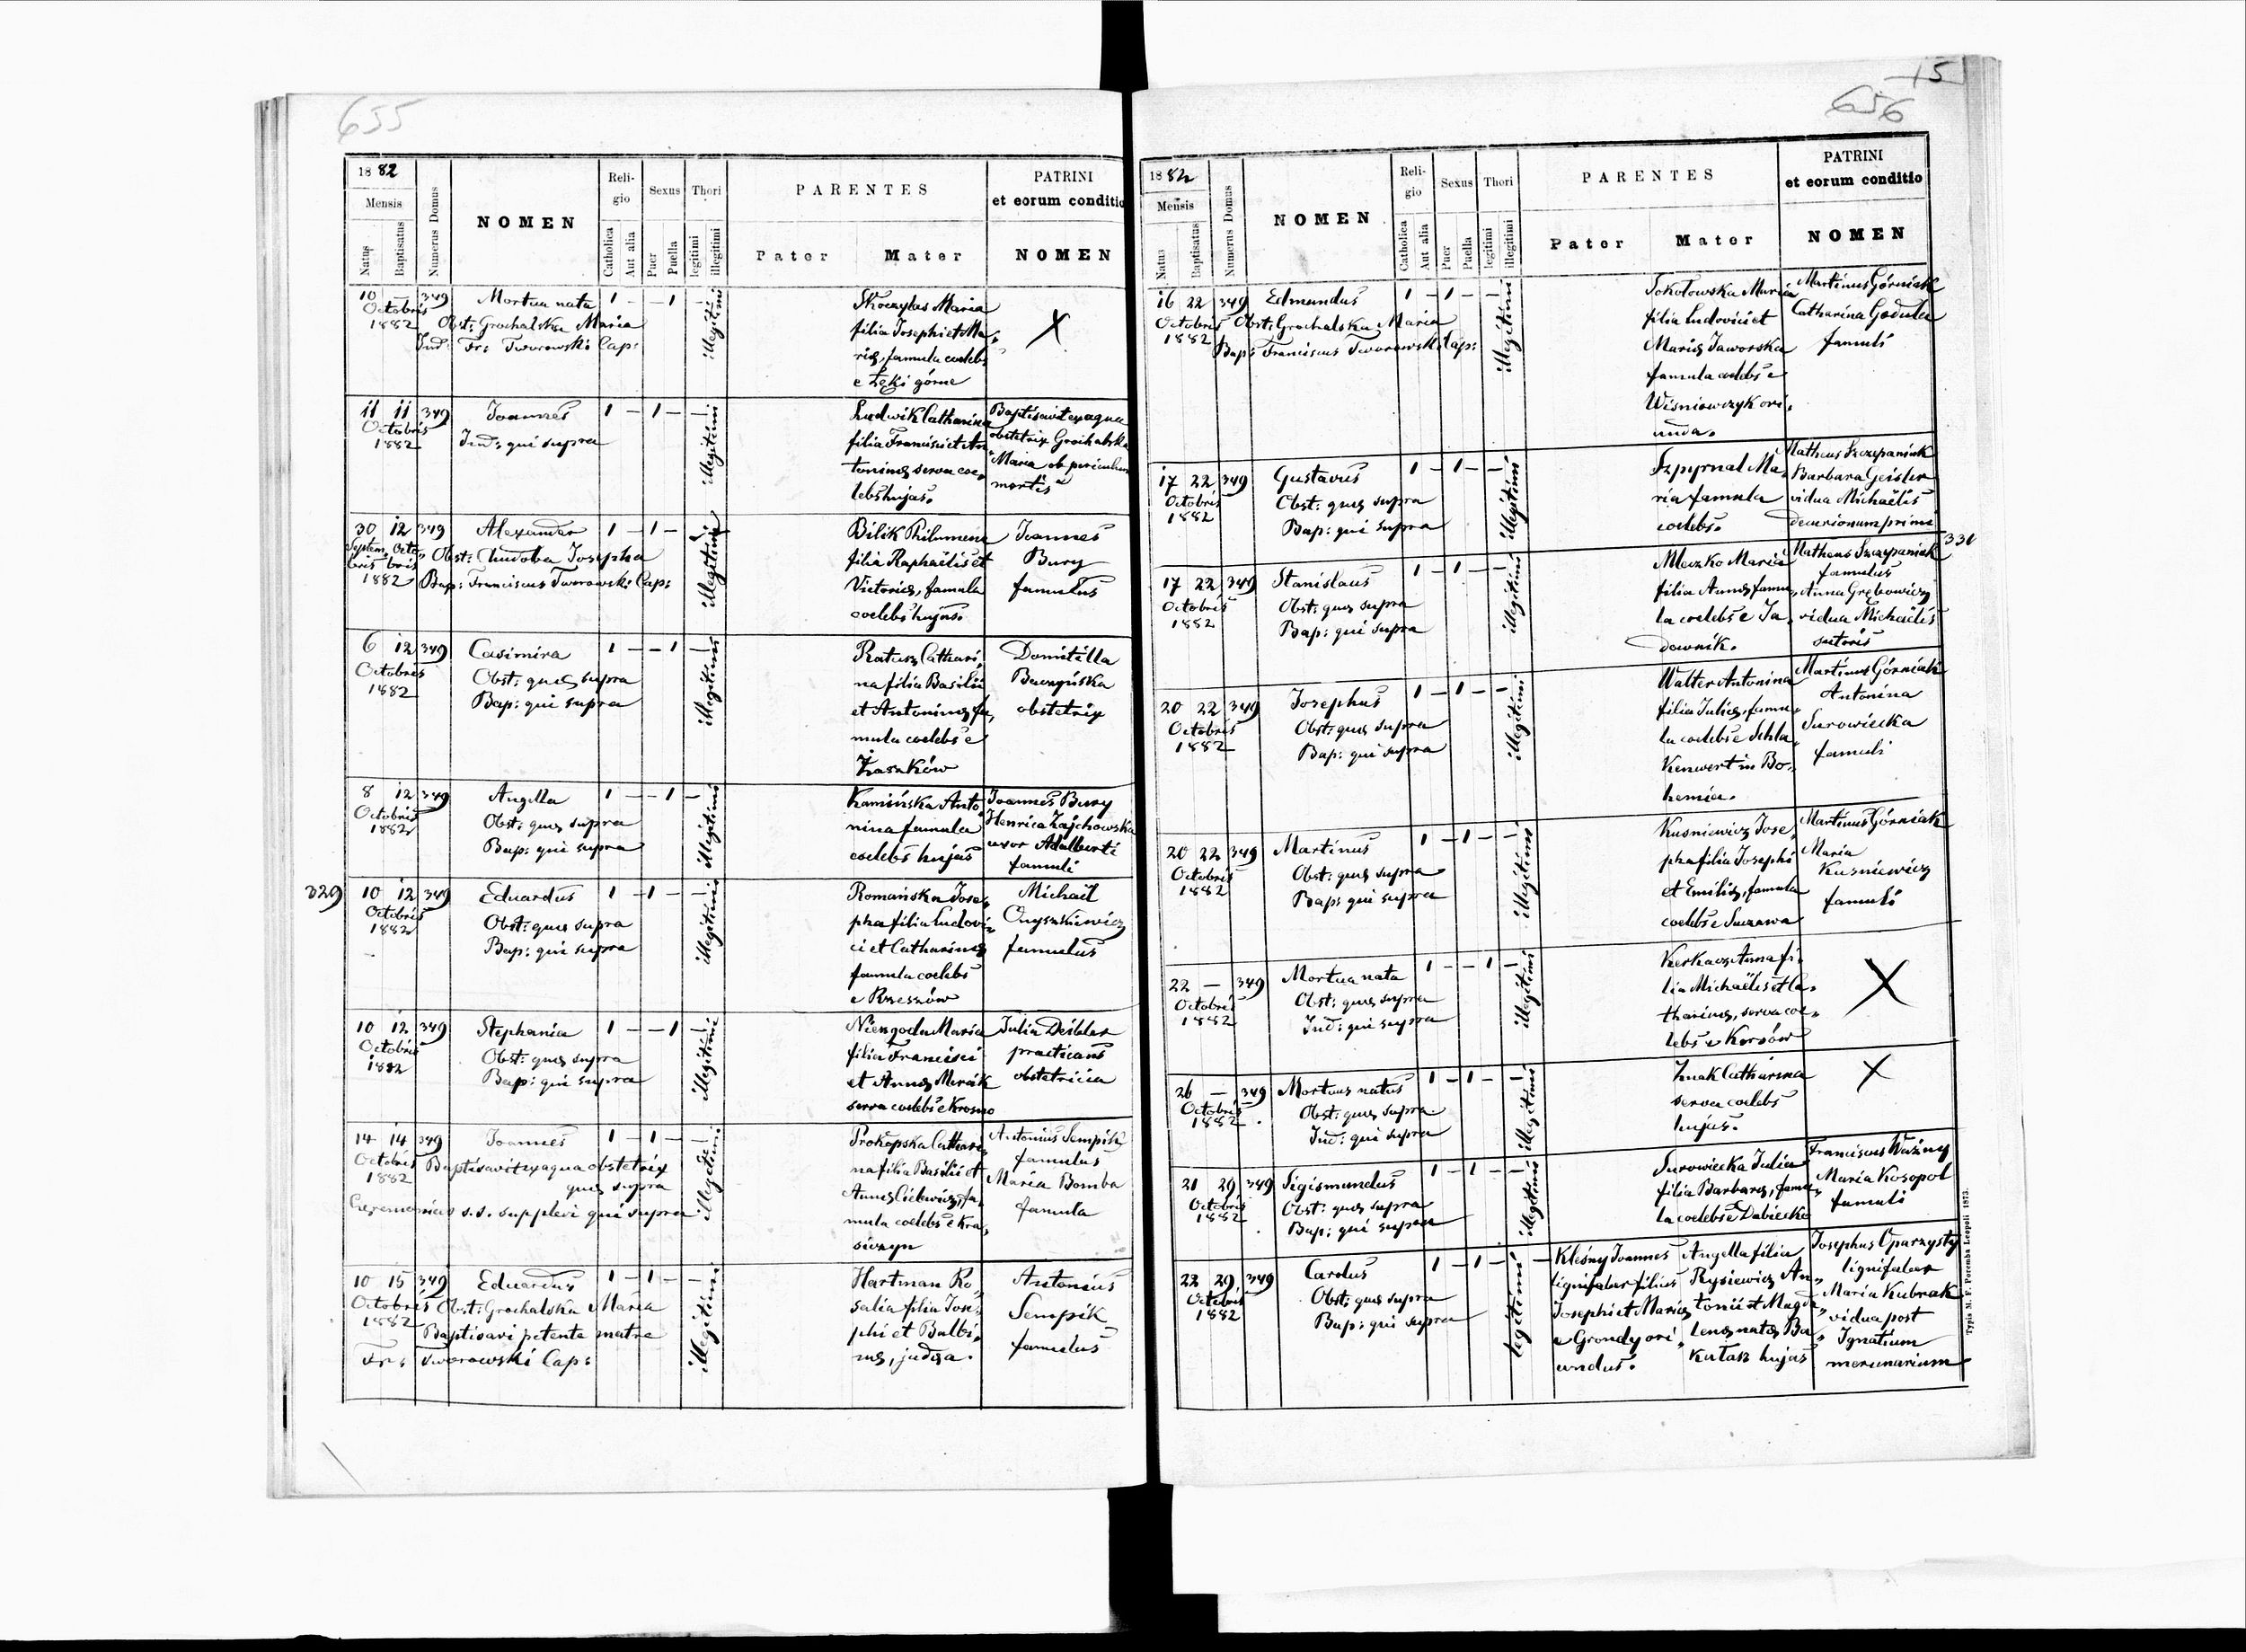 655
1882
Mensis
Natus
Baptisatus
Numerus Domus
NOMEN
Religio
Catholica
Aut alia
Sexus
Puer
Puella
Thori
legitimi
illegitimi
PARENTES
Pater
Mater
PATRINI
et eorum conditio
NOMEN
10 — 349 Mortua nata 1 — — 1 —
Octobris
1882
Obst: Grochalska Maria
Ind: Fr: Tworowski Cap:
illegitimi
Skoczylas Maria
filia Josephi et Ma,
riæ, famula coelebs
e Łęki górne
X
11 11 349 Joannes 1 — 1 — —
Octobris
1882
Ind: qui supra
illegitimi
Ludwik Catharina
filia Francisci et An
toninæ serva coe,
lebs hujas.
Baptisavit ex aqua
obstetrix Grochalska
Maria ob periculum
mortis
30 12 349 Alexander 1 — 1 — —
Septem, Octo,
bris bris
1882
Obst: Chudoba Josepha
Bap: Franciscus Tworowski Cap:
illegitimi
Bilik Philumena
filia Raphaëlis et
Victoriæ, famula
coelebs hujas.
Joannes
Bury
famulus
6 12 349 Casimira 1 — — 1 —
Octobris
1882
Obst: quæ supra
Bap: qui supra
illegitimi
Ratusz Cathari,
na filia Basilii
et Antoninæ fa,
mula coelebs e
Zaszków
Domitilla
Baczyńska
obstetrix
8 12 349 Angella 1 — — 1 —
Octobris
1882
Obst: quæ supra
Bap: qui supra
illegitimi
Kamińska Anto
nina famula
coelebs hujas
Joannes Bury
Henrica Zajchowska
uxor Adalberti
famuli
329
10 12 349 Eduardus 1 — 1 — —
Octobris
1882
Obst: quæ supra
Bap: qui supra
illegitimi
Romańska Jose,
pha filia Ludovi,
ci et Catharinæ
famula coelebs
e Rzeszów
Michaël
Onyszkiewicz
famulus
10 12 349 Stephania 1 — — 1 —
Octobris
1882
Obst: quæ supra
Bap: qui supra
illegitimi
Niezgoda Maria
filia Francisci
et Annæ
serva coelebs e Krosno
Julia Deibler
practicans
obstetricia
14 14 349 Joannes 1 — 1 — —
Octobris
1882
Baptisavit ex aqua obstetrix
quæ supra
Ceremonias s.s. supplevi qui supra
illegitimi
Prokopska Cathari,
na filia Basilii et
Annæ fa,
mula coelebs e Kra,
siczyn
Antonius Sempik
famulus
Maria Bomba
famula
10 15 349 Eduardus 1 — 1 — —
Octobris
1882
Obst: Grochalska Maria
Baptisavi petente matre
Fr: Tworowski Cap:
illegitimi
Hartman Ro,
salia filia Jose,
phi et Balbi,
næ, judæa.
Antonius
Sempik
famulus
15
656
1882
Mensis
Natus
Baptisatus
Numerus Domus
NOMEN
Religio
Catholica
Aut alia
Sexus
Puer
Puella
Thori
legitimi
illegitimi
PARENTES
Pater
Mater
PATRINI
et eorum conditio
NOMEN
16 22 349 Edmundus 1 — 1 — —
Octobris
1882
Obst: Grochalska Maria
Bap: Franciscus Tworowski Cap:
illegitimi
Sokołowska Maria
filia Ludovici et
Mariæ Jaworska
famula coelebs e
Wiśniowczyk ori,
unda.
Martinus Górniak
Catharina Gadula
famuli
17 22 349 Gustavus 1 — 1 — —
Octobris
1882
Obst: quæ supra
Bap: qui supra
illegitimi
Szpyrnal Ma,
ria famula
coelebs.
Matheus Szczepaniak
Barbara Geisler
vidua Michaëlis
decurionum primi
330
17 22 349 Stanislaus 1 — 1 — —
Octobris
1882
Obst: quæ supra
Bap: qui supra
illegitimi
Mleczko Maria
filia Annæ famu,
la coelebs e Ja,
downik.
Matheus Szczepaniak
famulus
Anna Grębowicz
vidua Michaëlis
sutoris
20 22 349 Josephus 1 — 1 — —
Octobris
1882
Obst: quæ supra
Bap: qui supra
illegitimi
Walter Antonina
filia Juliæ, famu,
la coelebs e Schla,
kenwert in Bo,
hemia.
Martinus Górniak
Antonina
Surowiecka
famuli
20 22 349 Martinus 1 — 1 — —
Octobris
1882
Obst: quæ supra
Bap: qui supra
illegitimi
Kusniewicz Jose,
pha filia Josephi
et Emiliæ, famula
coelebs e Suczawa
Martinus Górniak
Maria
Kusniewicz
famuli
22 — 349 Mortua nata 1 — — 1 —
Octobris
1882
Obst: quæ supra
Ind: qui supra
illegitimi
Anna fi,
lia Michaëlis et Ca,
tharinæ, serva coe,
lebs e Korsów
X
26 — 349 Mortuus natus 1 — 1 — —
Octobris
1882
Obst: quæ supra
Ind: qui supra
illegitimi
Żuak Catharina
serva coelebs
hujas.
X
21 29 349 Sigismundus 1 — 1 — —
Octobris
1882
Obst: quæ supra
Bap: qui supra
illegitimi
Surowiecka Julia
filia Barbaræ, famu,
la coelebs e Dubiecko
Franciscus Woźny
Maria Kosopol
famuli
22 29 349 Carolus 1 — 1 — —
Octobris
1882
Obst: quæ supra
Bap: qui supra
legitimi
Kleśny Joannes
lignifaber filius
Josephi et Mariæ
e Grondy ori,
undus.
Angella filia
Rysiewicz An,
tonii et Magda,
lenæ natæ Ba,
kutasz hujas
Josephus Oparzysty
lignifaber
Maria Kubrak
vidua post
Ignatium
mercenarium
Typis M. F. Poremba Leopoli 1873.